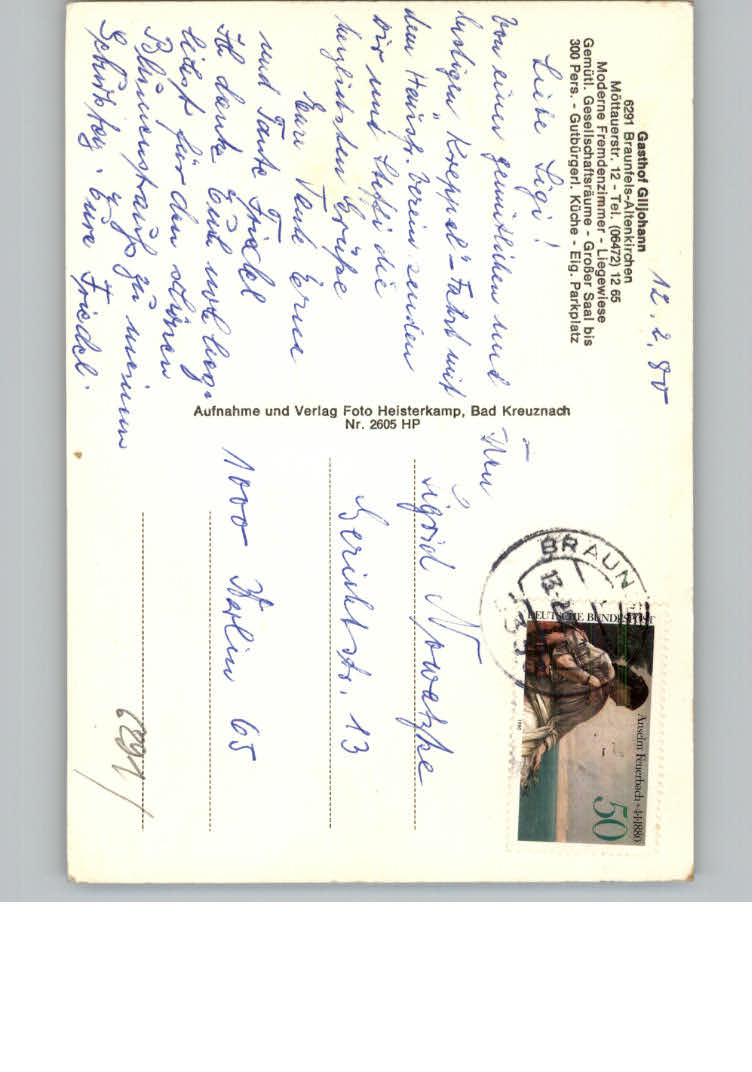 Gasthof Gilljohann
6291 Braunfels-Altenkirchen
Möttauerstr. 12 - Tel. (06472) 12 65
Moderne Fremdenzimmer - Liegewiese
Gemütl. Gesellschaftsräume - Großer Saal bis
300 Pers. - Gutbürgerl. Küche - Eig. Parkplatz
12.2.80
Liebe Sigi!
Von einer gemütlichen und
lustigen "Kreppel"-Fahrt mit
dem Hausfr. Verein senden
wir und die
herzlichsten Grüße
Eure Tante Erna
und Tante Friedel
Ich danke Euch
für den schönen
Blumenstrauß zu meinem
Eure Friedel.
Aufnahme und Verlag Foto Heisterkamp, Bad Kreuznach
Nr. 2605 HP
Sigrid Nowatzke
Gerichtstr. 13
1000 Berlin 65
BRAUN
DEUTSCHE BUNDESPOST
Anselm Feuerbach
50